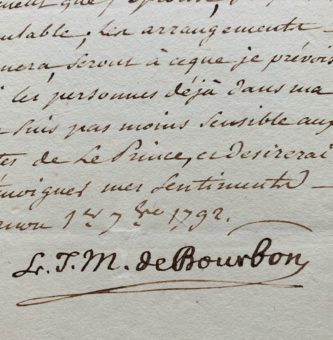 ment que
sulable; les arrangements
mera seront à ceque je prévois
i les personnes déjà dans ma
suis pas moins sensible aux
tes de Le Prince, et desirerai
émoigner mes sentiments
non 1er 7bre 1792.
L. J. M. de Bourbon